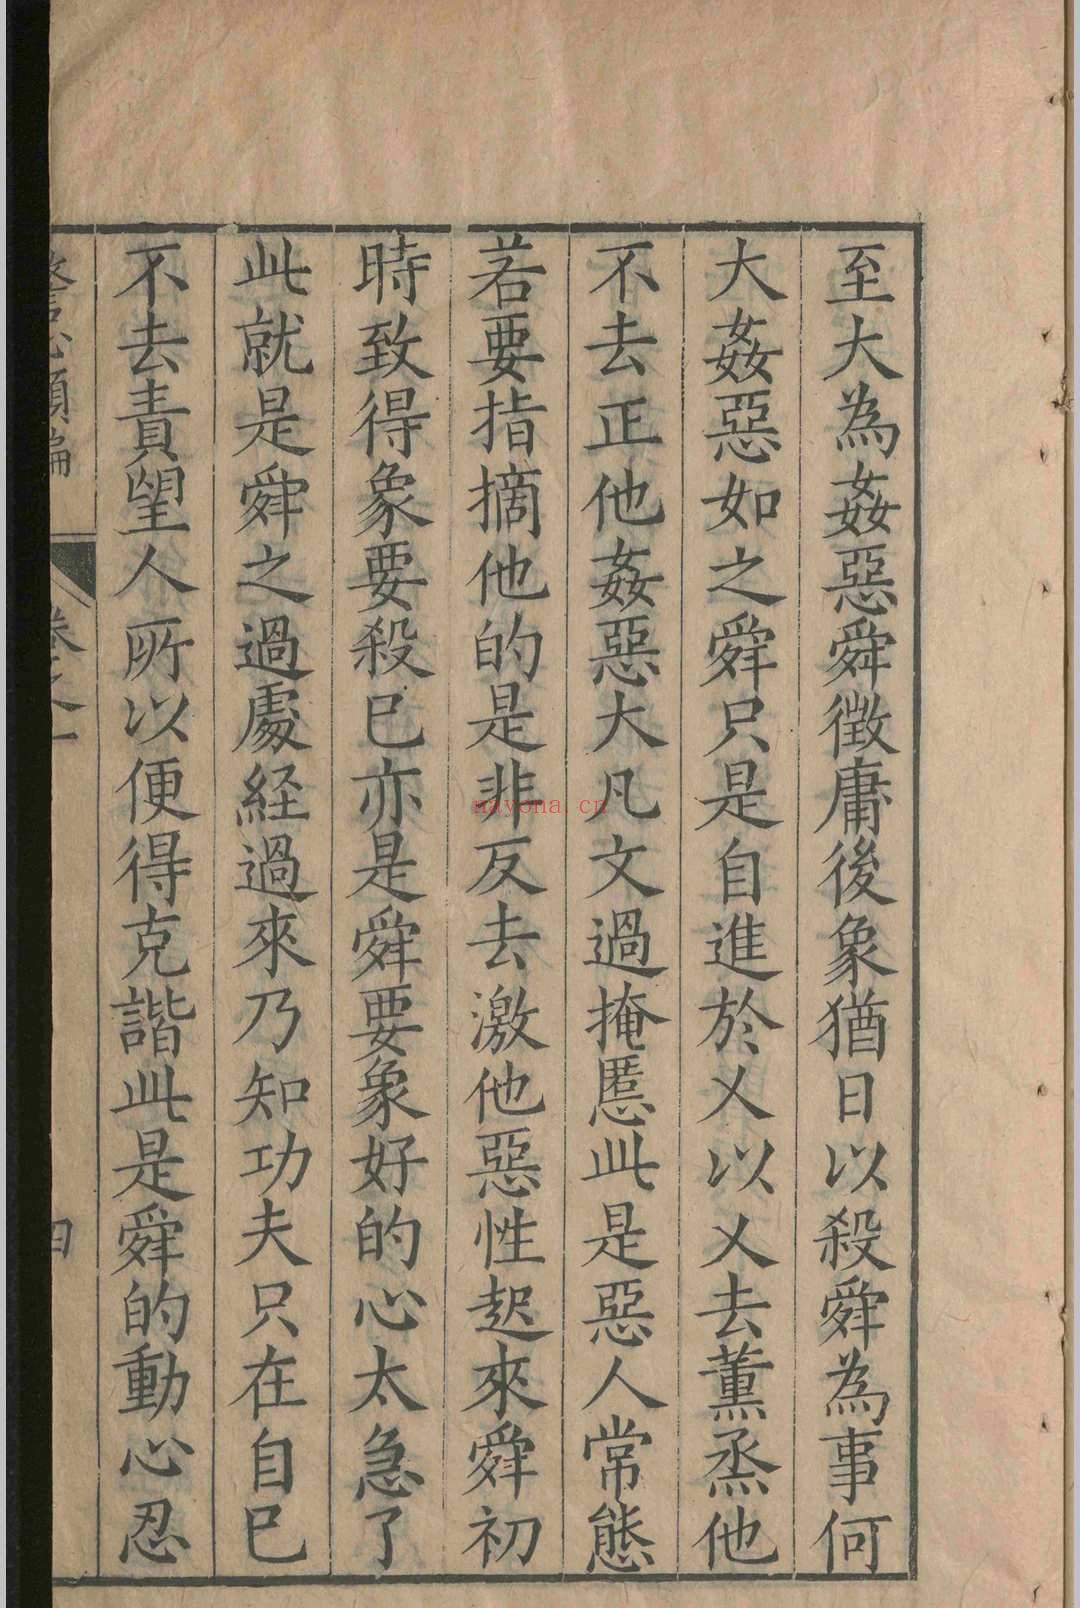 至大為姦惡舜徵庸後象猶日以殺舜為事何
大姦惡如之舜只是自進於乂以乂去薰烝他
不去正他姦惡大凡文過掩慝此是惡人常態
若要指摘他的是非反去激他惡性起來舜初
時致得象要殺已亦是舜要象好的心太急了
此就是舜之過處経過來乃知功夫只在自巳
不去責望人所以便得克諧此是舜的動心忍
卷之一
四
nayona.cn